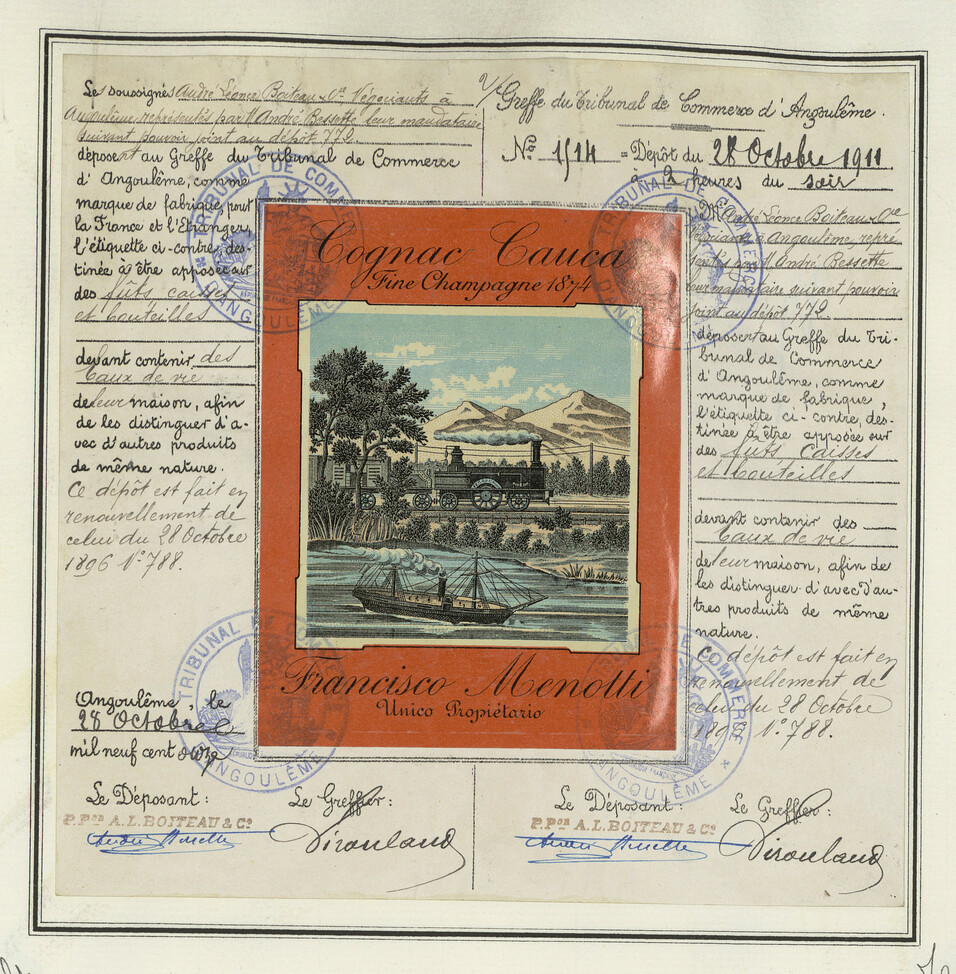 Les soussignés André Léonce Boiteau & Cie Négociants à
Angoulême, représentés par M. André Bessette leur mandataire
suivant pouvoir joint au dépôt 772.
déposent au Greffe du Tribunal de Commerce
d'Angoulême, comme
marque de fabrique, pour
la France et l'Étranger,
l'étiquette ci-contre, des-
tinée à être apposée sur
des fûts, caisses
et bouteilles
devant contenir des
Eaux de vie
de leur maison, afin
de les distinguer d'a-
vec d'autres produits
de même nature.
Ce dépôt est fait en
renouvellement de
celui du 28 Octobre
1896 N° 788.
Angoulême, le
28 Octobre
mil neuf cent onze
Le Déposant :
Le Greffier :
P. PON A. L. BOITEAU & Cº
André Bessette
Cognac Cauca
Fine Champagne 1874
Francisco Menotti
Unico Propiétario
Greffe du Tribunal de Commerce d'Angoulême.
Nº 1514 = Dépôt du 28 Octobre 1911
à 2 heures du soir
M. André Léonce Boiteau & Cie
Négociants à Angoulême, repré
sentés par M. André Bessette
leur mandataire suivant pouvoir
joint au dépôt 772.
déposent au Greffe du Tri-
bunal de Commerce
d'Angoulême, comme
marque de fabrique,
l'étiquette ci-contre, des-
tinée à être apposée sur
des fûts Caisses
et bouteilles
devant contenir des
Eaux de vie
de leur maison, afin de
les distinguer d'avec d'au-
tres produits de même
nature.
Ce dépôt est fait en
renouvellement de
celui du 28 Octobre
1896 N° 788.
Le Déposant :
Le Greffier :
P. PON A. L. BOITEAU & Cº
André Bessette
TRIBUNAL DE COMMERCE
D'ANGOULÊME
TRIBUNAL DE COMMERCE
D'ANGOULÊME
TRIBUNAL DE COMMERCE
D'ANGOULÊME
TRIBUNAL DE COMMERCE
D'ANGOULÊME